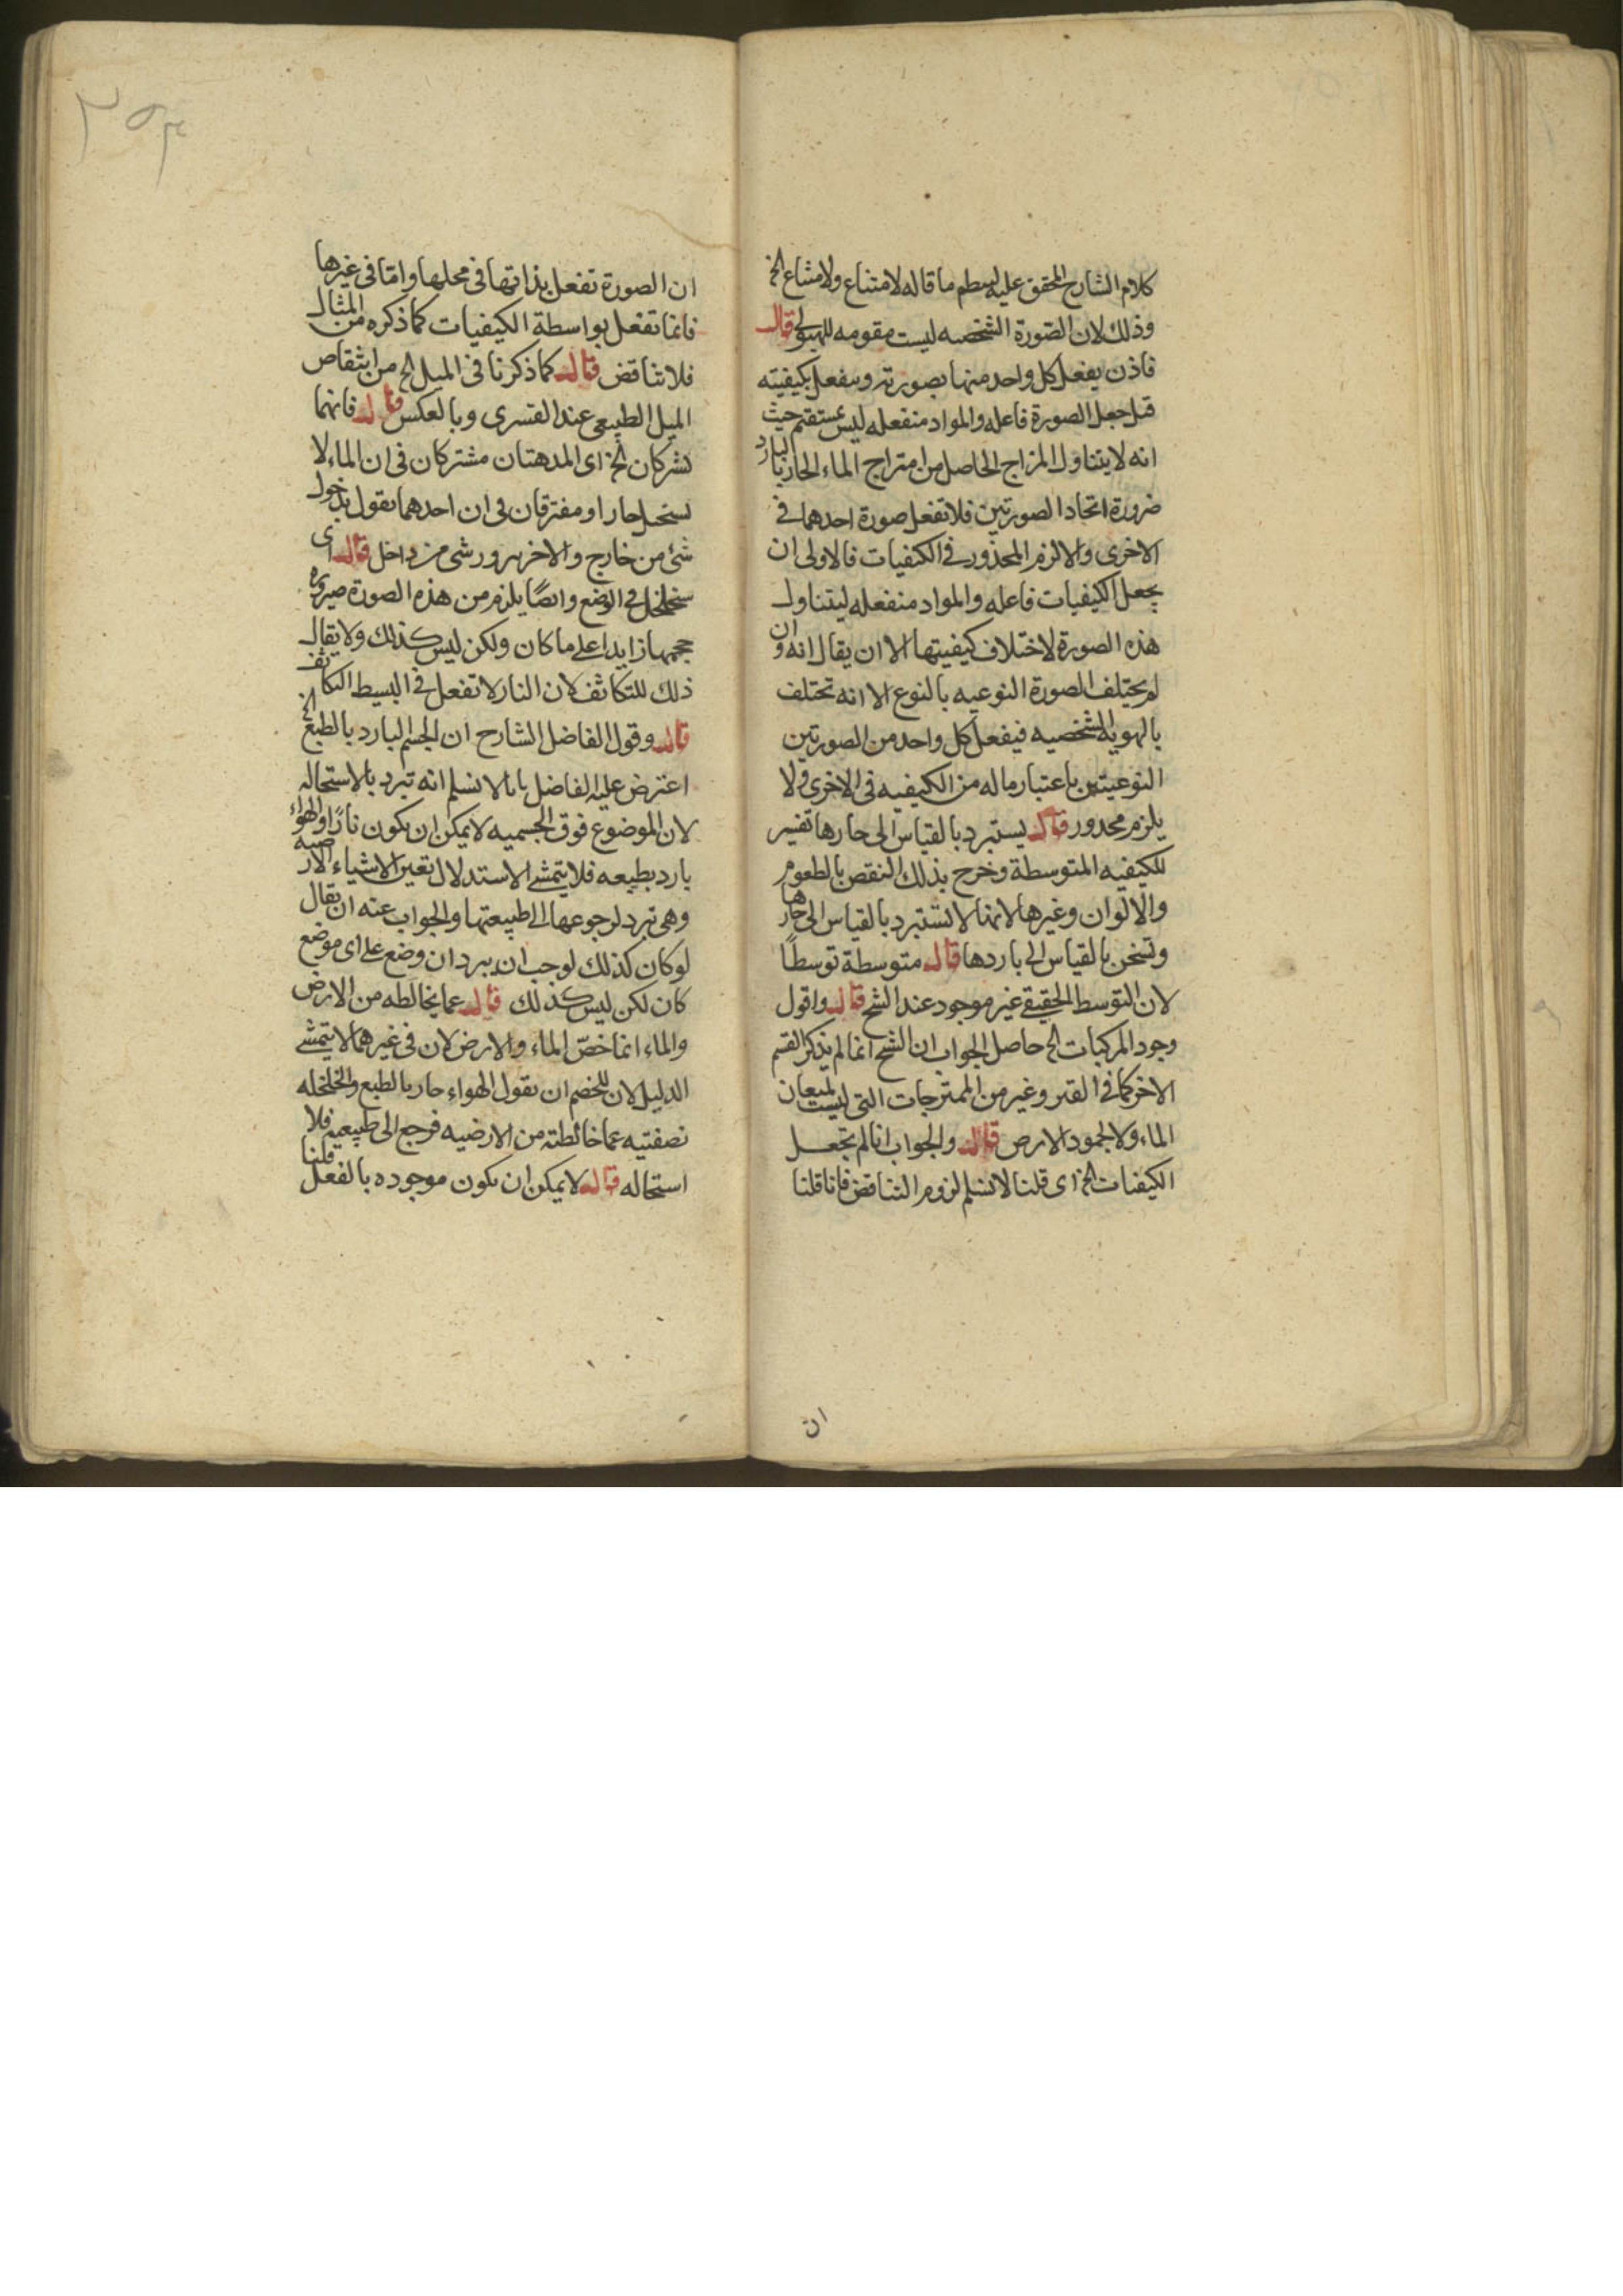 كلام الشارح المحقق عليه ما قاله لامتناع ولامشاع الخ
وذلك لان الصورة الشخصيه ليست مقومه للهيولى قال
فاذن يفعل كل واحد منها بصورته وينفعل بكيفيته
قيل جعل الصورة فاعله والمواد منفعله ليس بمستقيم حيث
انه لا يتناول المزاج الحاصل من امتزاج الماء الحار بالبارد
ضرورة اتحاد الصورتين فلا تفعل صورة احدهما في
الاخرى والا لزم المحذور في الكيفيات فالاولى ان
يجعل الكيفيات فاعله والمواد منفعله ليتناول
هذه الصورة لاختلاف كيفيتها الا ان يقال انه وان
لم يختلف الصورة النوعيه بالنوع الا انه تختلف
بالهويه الشخصيه فيفعل كل واحد من الصورتين
النوعيتين باعتبار ماله من الكيفيه في الاخرى ولا
يلزم محذور قال يستبرد بالقياس الى حارها تفسير
للكيفيه المتوسطة وخرج بذلك النقص بالطعوم
والالوان وغيرها لانها لا تستبرد بالقياس الى حارها
وتسخن بالقياس الى باردها قال متوسطة توسطًا
لان التوسط الحقيقي غير موجود عند الشيخ قال واقول
وجود المركبات الخ حاصل الجواب ان الشيخ انما لم يذكر القسم
الاخر كما في القير وغير من الممتزجات التي ليست لميعان
الماء ولا لجمود الارض قال والجواب انا لم نجعل
الكيفيات الخ اى قلنا لا نسلم لزوم التناقض فانا قلنا
ان
٢٥٣
ان الصورة تفعل بذاتها في محلها واما في غيرها
فانما تفعل بواسطة الكيفيات كما ذكره من المثال
فلا تناقض قال كما ذكرنا في الميل الخ من انتقاص
الميل الطبيعي عند القسري وبالعكس قال فانهما
تشركان الخ اى المذهبان مشتركان في ان الماء لا
يستحيل حارا ومفترقان في ان احدهما يقول بدخول
شئ من خارج والاخر بروز شئ من داخل قال اى
يتخلخل في الوضع وايضًا يلزم من هذه الصورة صيرورة
حجمها زايدا على ما كان ولكن ليس كذلك ولا يقال
ذلك للتكاثف لان النار لا تفعل في البسيط التكاثف
قال وقول الفاضل الشارح ان الجسم البارد بالطبع الخ
اعترض عليه الفاضل بانا لا نسلم انه تبرد بالاستحاله
لان الموضوع فوق الجسميه لا يمكن ان يكون نارًا والهواء
بارد بطبيعه فلا يتمشى الاستدلال تعين الاشياء الارضيه
وهي تبرد لرجوعها الى طبيعتها والجواب عنه ان يقال
لو كان كذلك لوجب ان يبرد ان وضع على اى موضع
كان لكن ليس كذلك قال عما يخالطه من الارض
والماء انما خصّ الماء والارض لان في غيرهما لا يتمشى
الدليل لان للخصم ان يقول الهواء حار بالطبع والخلخله
تصفتيه عما خالطته من الارضيه فرجع الى طبيعيه فلا
استحاله قال لا يمكن ان يكون موجوده بالفعل قلنا